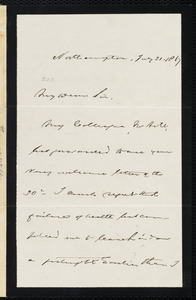 Northampton, July 21. 1867
My Dear Sir,
My Colleague, Mr. Hill,
has forwarded to me your
very welcome letter of the
20th. I much regret that
failure of health has com-
pelled me to
a fortnight earlier than I